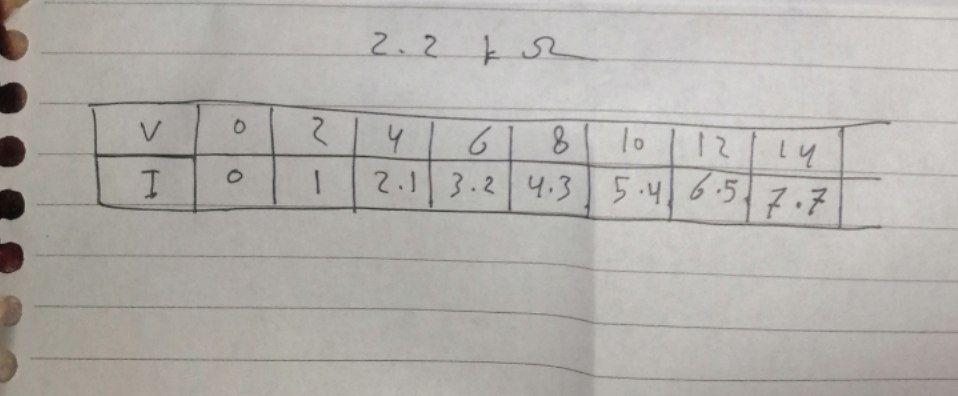 2.2 k Ω
V 0 2 4 6 8 10 12 14
I 0 1 2.1 3.2 4.3 5.4 6.5 7.7